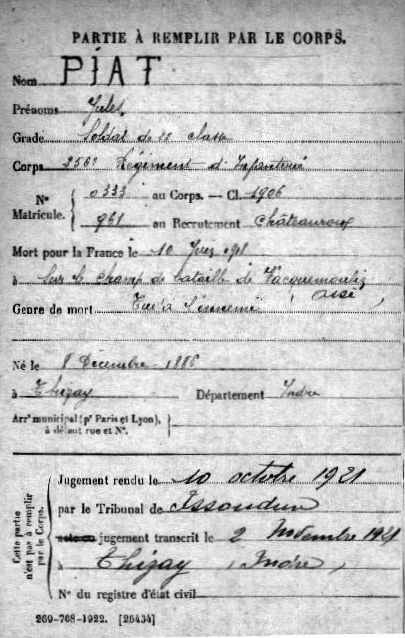 PARTIE À REMPLIR PAR LE CORPS.
Nom PIAT
Prénoms Jules
Grade Soldat de 2e classe
Corps 256e Régiment d'Infanterie
N° Matricule. 0333 au Corps. — Cl. 1906
961 au Recrutement Châteauroux
Mort pour la France le 10 Juin 1918
à Sur le champ de bataille de Vacquemoulin
Oise
Genre de mort Tué à l'ennemi
Né le 8 Décembre 1886
à Thizay Département Indre
Arr^t municipal (p^r Paris et Lyon),
à défaut rue et N°.
Cette partie n'est pas à remplir par le Corps.
Jugement rendu le 10 octobre 1921
par le Tribunal de Issoudun
jugement transcrit le 2 Novembre 1921
à Thizay (Indre)
N° du registre d'état civil
269-708-1922. [26434]